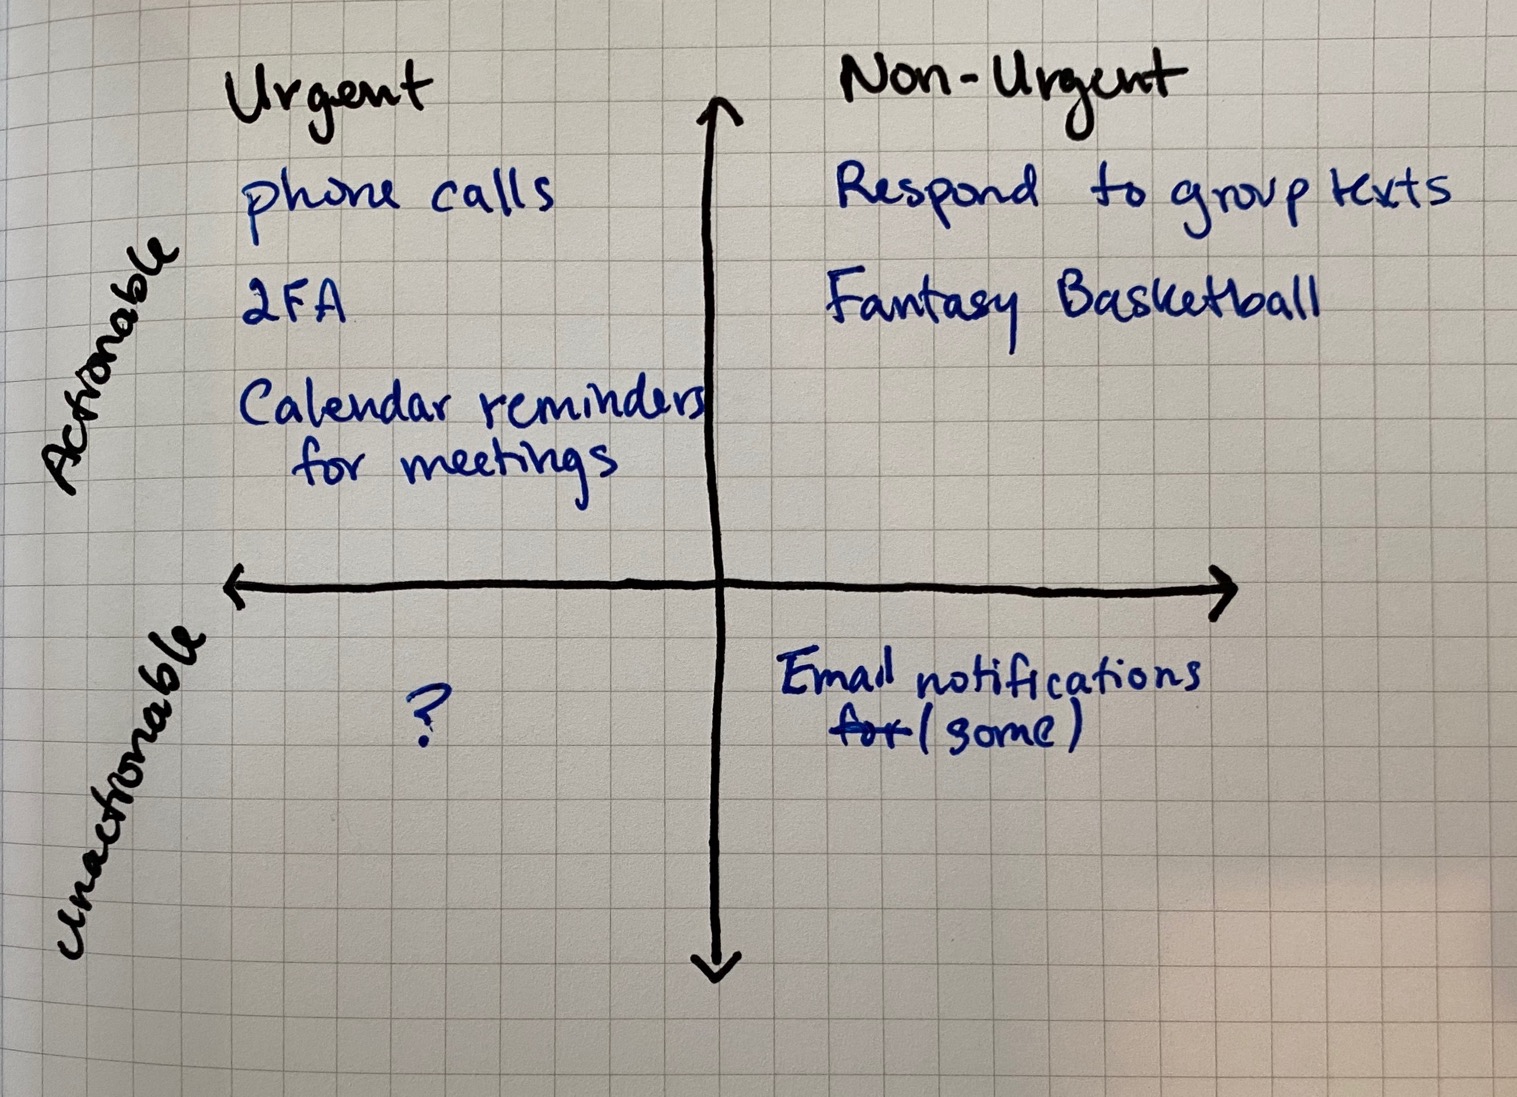 Urgent
Non-Urgent
Actionable
phone calls
2FA
Calendar reminders
for meetings
Respond to group texts
Fantasy Basketball
Unactionable
?
Email notifications
for (some)